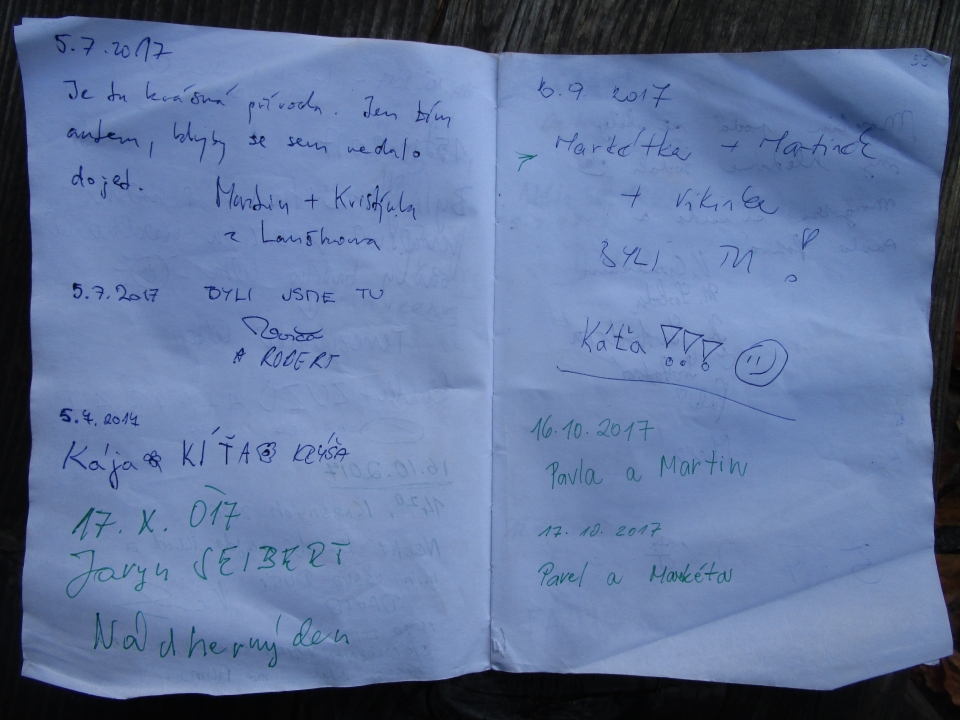 5.7.2017
Je tu krásná příroda. Jen bím
autem, kdyby se sem nedalo
dojet.
Martin + Kristýnka
z Lanškrouna
5.7.2017 BYLI JSME TU
A ROBERT
5.7.2017
Kája KÍŤA KRÝŠA
17. X. 017
Jaryn SEIBERT
Nádherný den
6.9 2017
Markétka + Martínek
+ Vikinka
BYLI TU !
Káťa !!!
16.10.2017
Pavla a Martin
17.10.2017
Pavel a Markéta